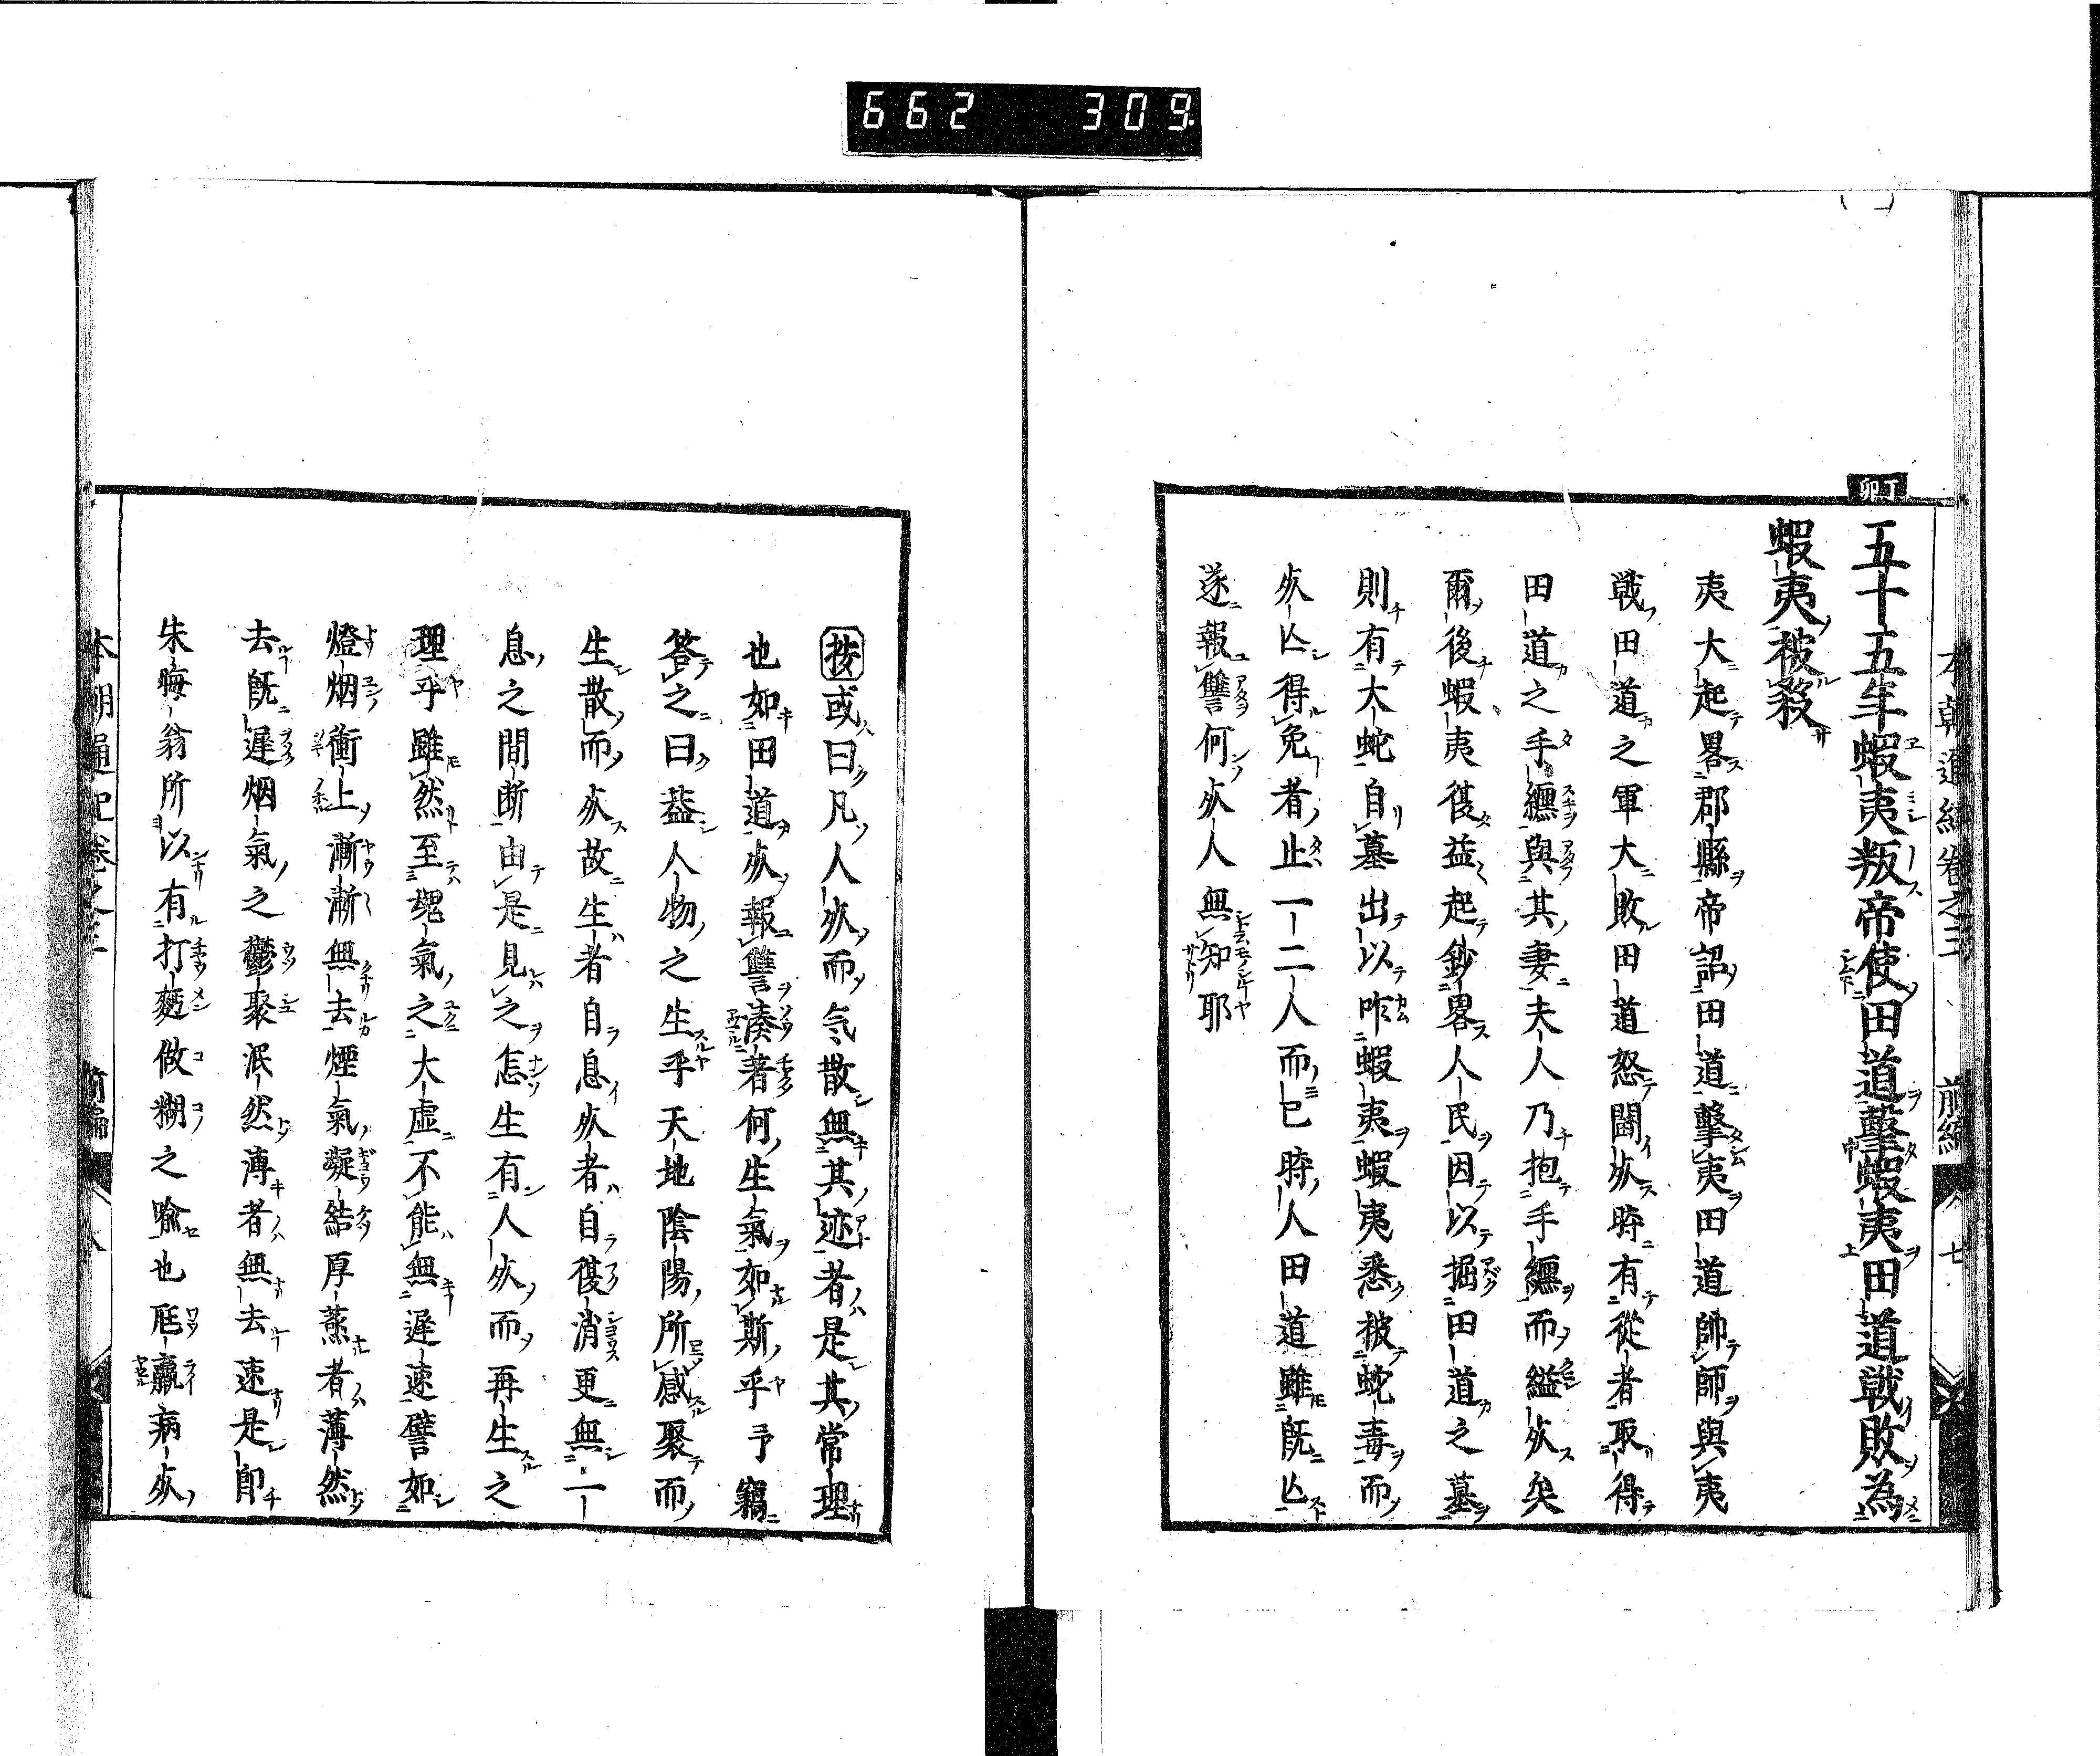 662 309
本朝通紀卷之三 前編 七
丁卯
五十五年蝦夷叛帝使田道擊蝦夷田道戰敗為
蝦夷被殺
夷大起畧郡縣帝詔田道擊夷田道帥師與夷
戰田道之軍大敗田道怒鬪死時有從者取得
田道之手纏與其妻夫人乃抱手纏而縊死矣
爾後蝦夷復益起鈔畧人民因以掘田道之墓
則有大蛇自墓出以咋蝦夷蝦夷悉被蛇毒而
死亾得免者止一二人而已時人田道雖既亾
遂報讐何死人無知耶
按或曰凡人死而気散無其迹者是其常理
也如田道死報讐湊著何生氣如斯乎予竊
答之曰葢人物之生乎天地陰陽所感聚而
生散而死故生者自息死者自復消更無一
息之間断由是見之怎生有人死而再生之
理乎雖然至魂氣之大虛不能無遲速譬如
燈烟衝上漸漸無去煙氣凝結厚蒸者薄然
去既遲烟氣之鬱聚泯然薄者無去速是即
朱晦翁所以有打麪做糊之喩也尫羸病死
本朝通記卷之三 前編 八